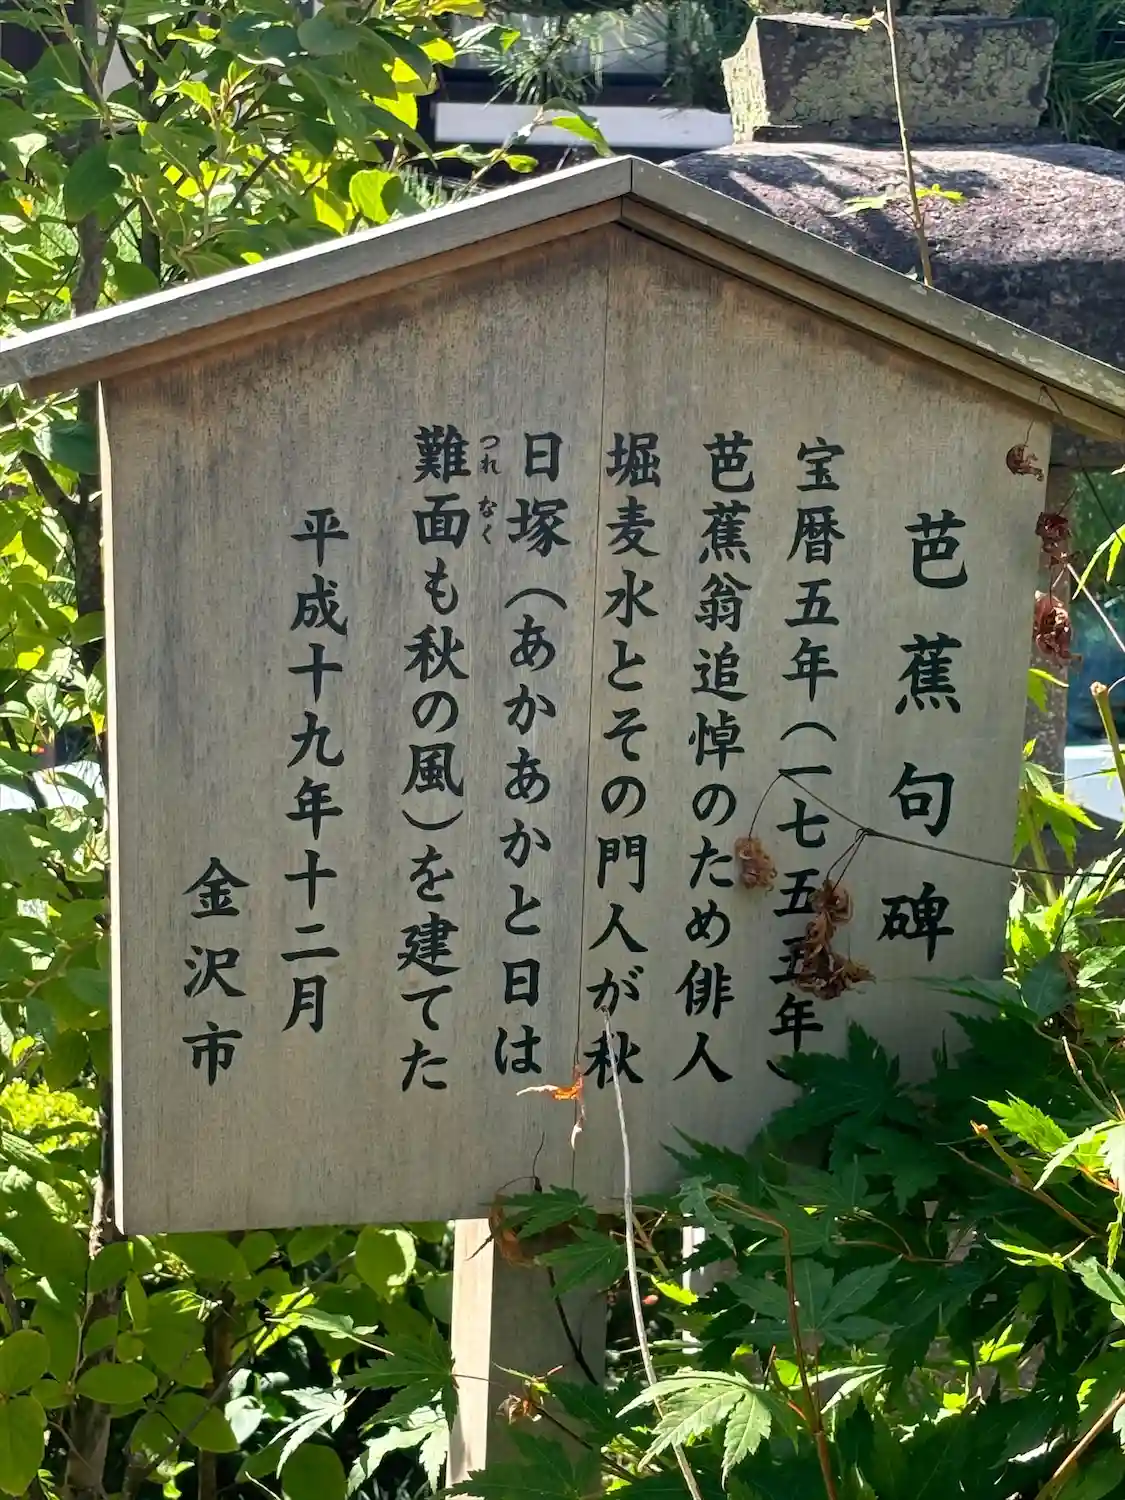 芭蕉句碑
宝暦五年（一七五五年）
芭蕉翁追悼のため俳人
堀麦水とその門人が秋
日塚（あかあかと日は
つれなく
難面も秋の風）を建てた
平成十九年十二月
金沢市